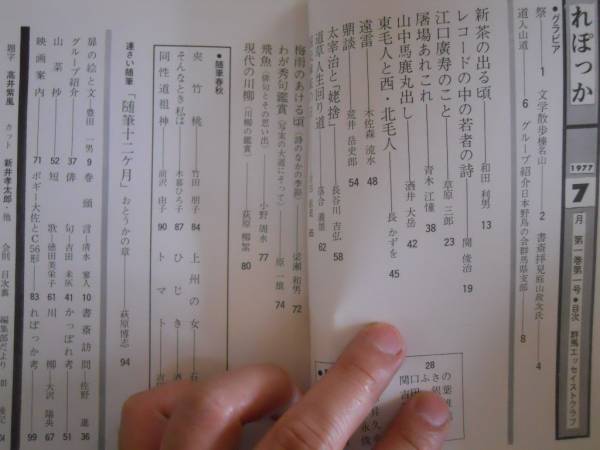 れぽっか
1977
7月
第一巻第一号●目次
群馬エッセイストクラブ
●グラビア
祭 1
文学散歩榛名山 2
書斎拝見庭山政次氏 4
道入山道 6
グループ紹介日本野鳥の会群馬県支部 8
新茶の出る頃 和田利男 13
レコードの中の若者の詩 関俊治 19
江口廣寿のこと 草原三郎 23
屠場あれこれ 青木江憧 38
山中馬鹿丸出し 酒井大岳 42
東毛人と西・北毛人 長かずを 45
遠雷 木佐森流水 48
鼎談 荒井岳史郎 54
太宰治と「姥捨」 長谷川吉弘 58
道草人生回り道 落合義雄 62
梅雨のあける頃(詩のなかの季節) 梁瀬和男 72
わが秀句鑑賞(写実の大道にそって) 原一雄 74
飛魚(俳句とその思い出) 小野周水 77
現代の川柳(川柳の鑑賞) 荻原柳絮 80
●随筆春秋
夾竹桃 竹田朋子 84
そんなとき私は 木暮ひろ子 87
同性道祖神 前沢由子 90
上州の女
ひじき
トマト
連さい随筆
「随筆十二ヶ月」おとうかの章 萩原博志 94
扉の絵と文 豊田一男 9
巻頭言 清水寥人 10
書斎訪問 佐野進 36
グループ紹介 37
俳句 吉田未灰 41
かっぽれ考 51
山菜抄 52
短歌 徳田英栄子 61
川柳 大沢陽央 67
映画案内 71
ポギー大佐とC56形 83
れぽっか考 99
題字 高井紫風
カット 新井孝太郎・他
会則
目次裏
編集部だより
28